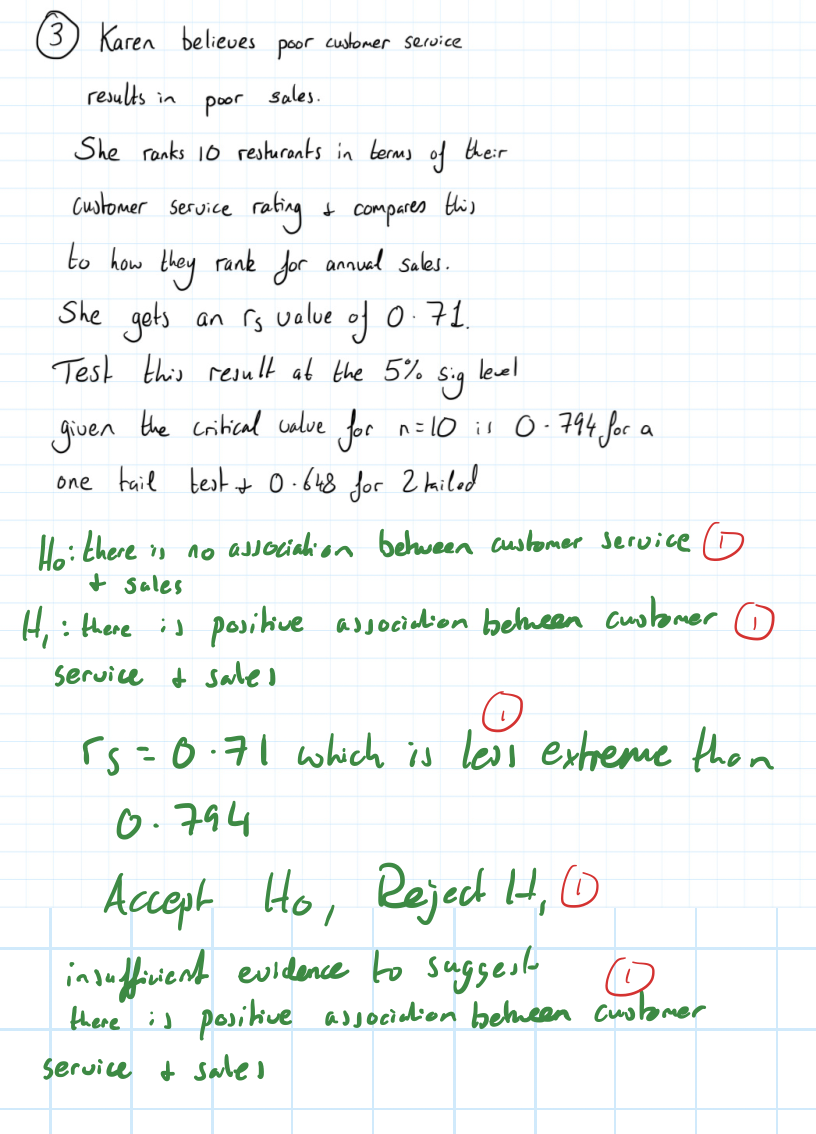 ③ Karen believes poor customer service
results in poor sales.
She ranks 10 resturants in terms of their
customer service rating & compares this
to how they rank for annual sales.
She gets an rs value of 0.71.
Test this result at the 5% sig level
given the critical value for n=10 is 0.794 for a
one tail test & 0.648 for 2 tailed
H₀: there is no association between customer service ①
& sales
H₁: there is positive association between customer ①
service & sales
①
rs = 0.71 which is less extreme than
0.794
Accept H₀, Reject H₁ ①
insufficient evidence to suggest ①
there is positive association between customer
service & sales